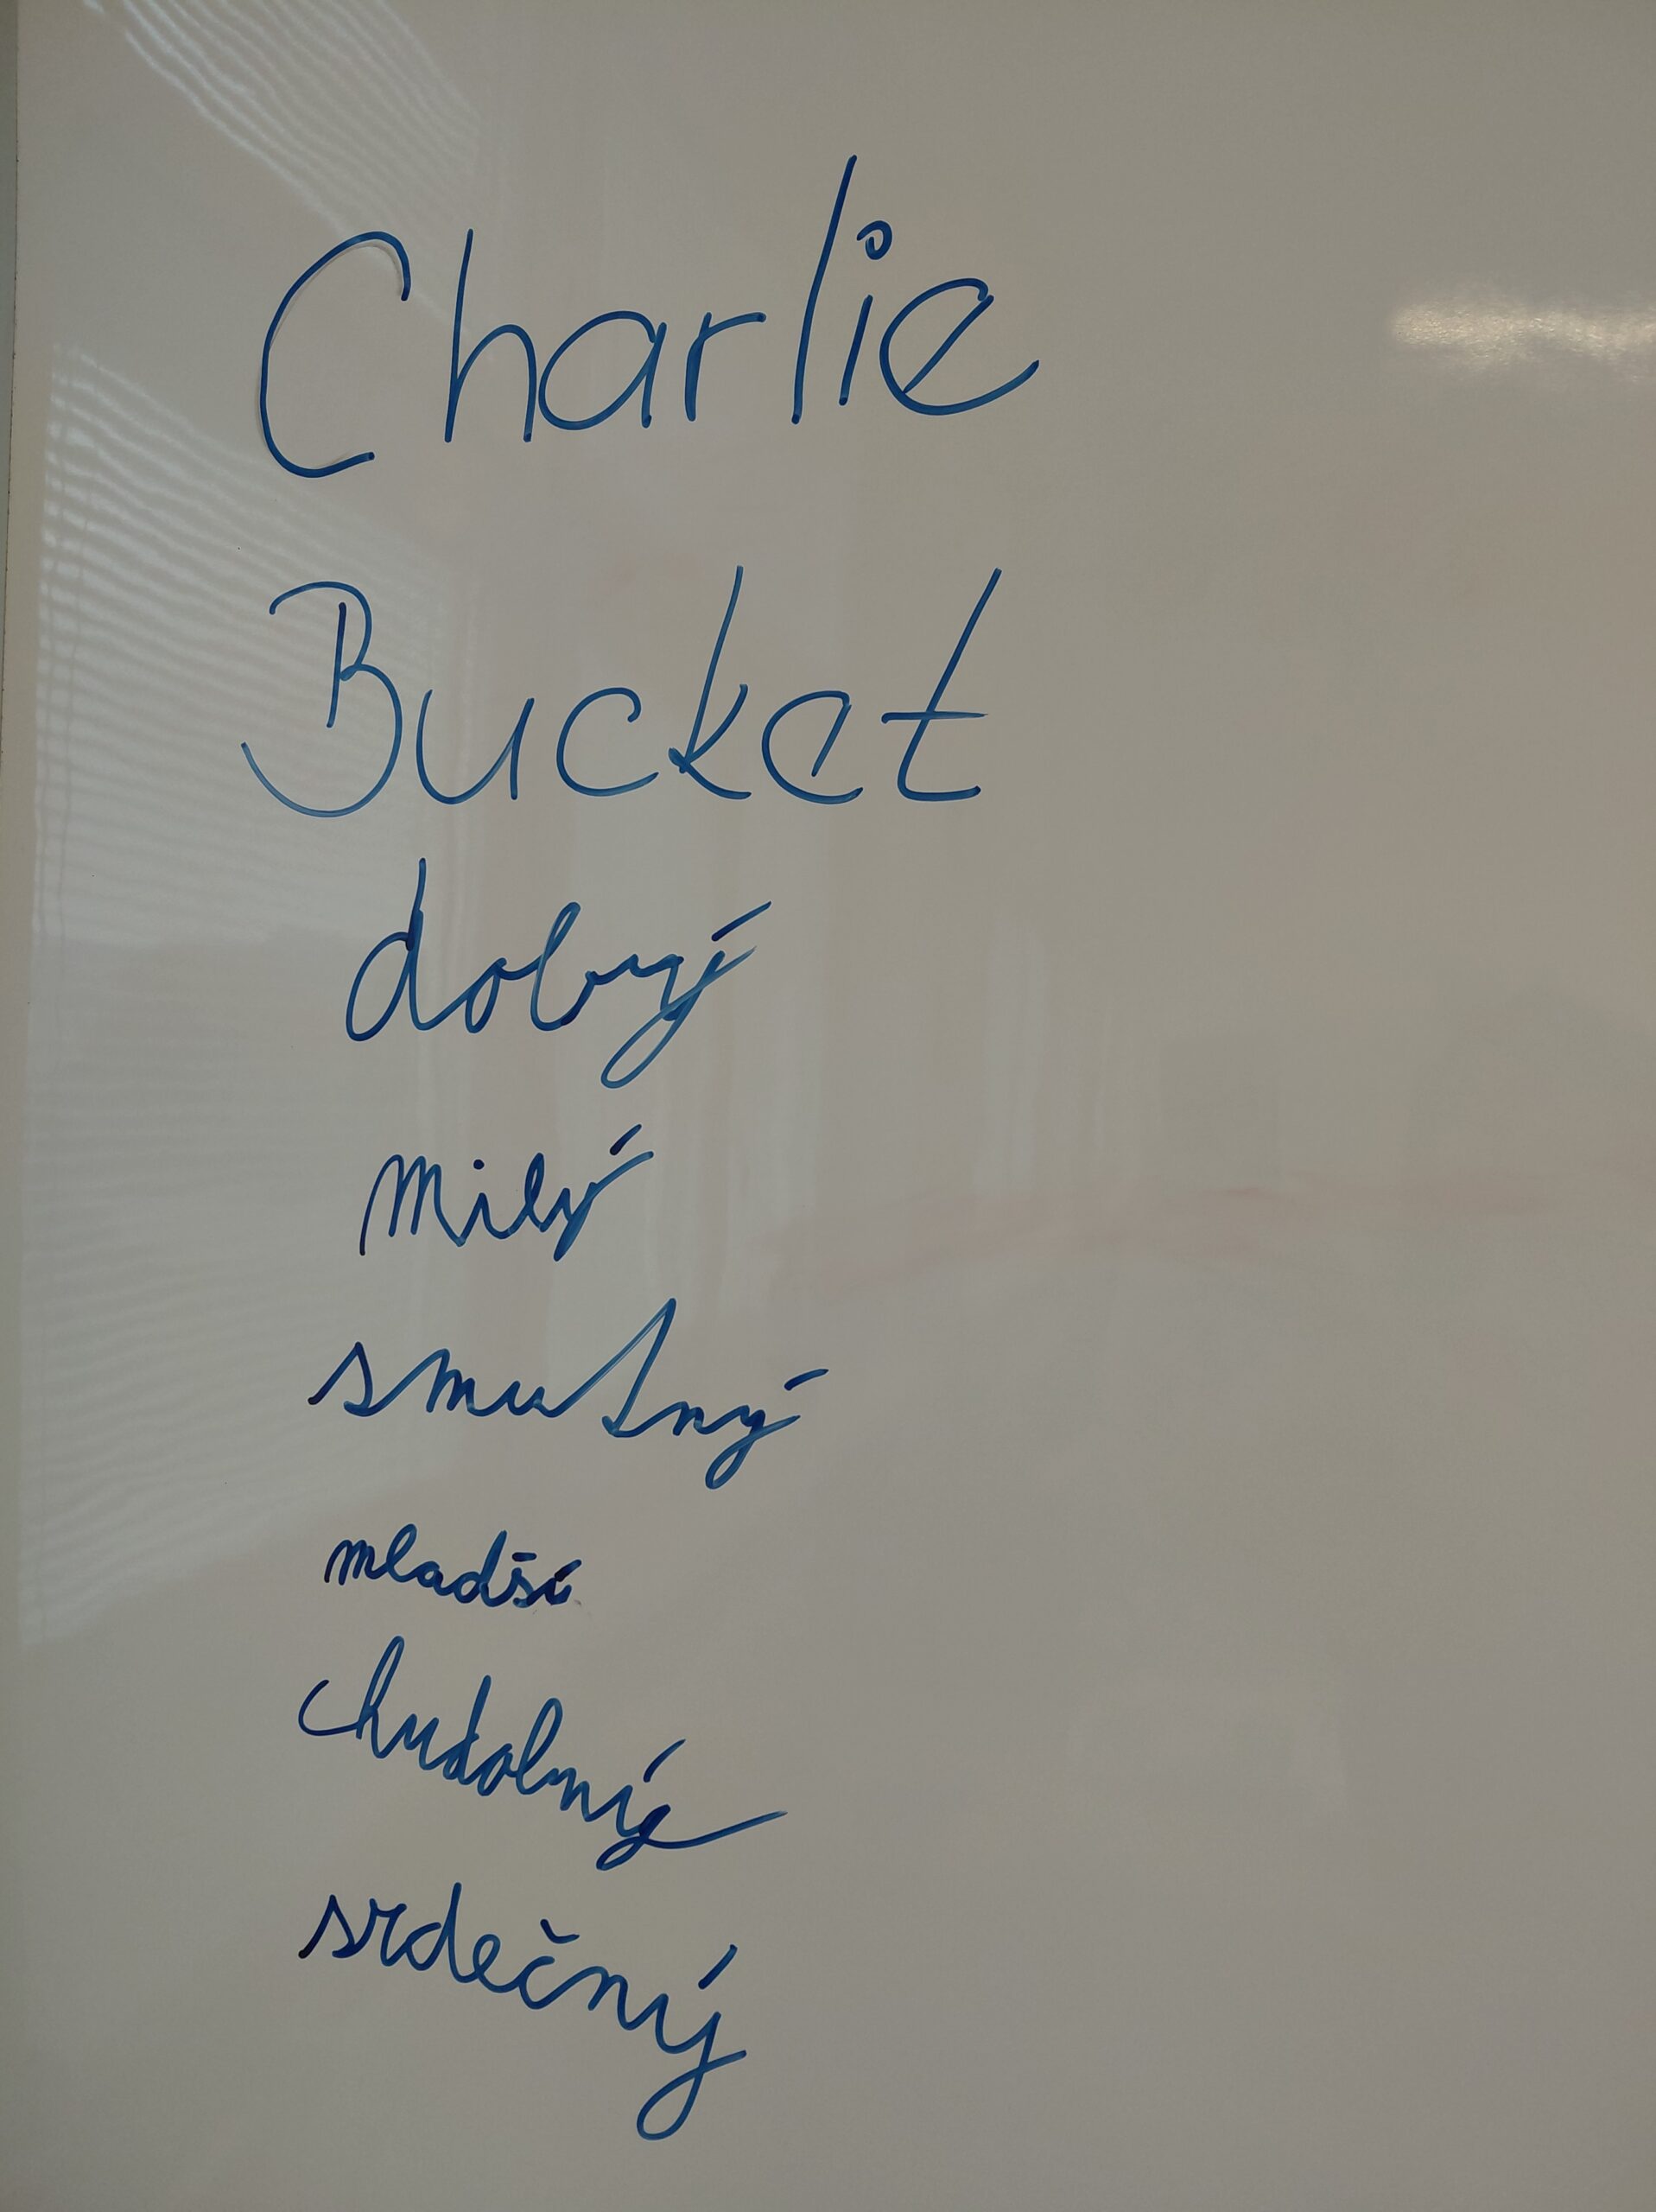 Charlie
Bucket
dobrý
milý
smutný
mladší
chudobný
srdečný